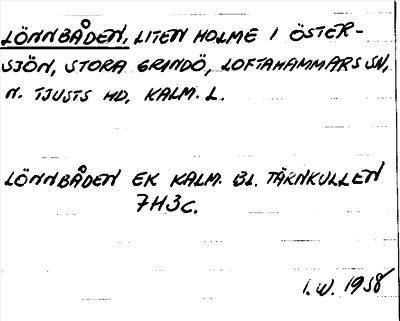 LÖNNBÅDEN, LITEN HOLME I ÖSTER-
SJÖN, STORA GRINDÖ, LOFTAHAMMARS SN,
N. TJUSTS HD, KALM. L.
LÖNNBÅDEN EK KALM. BL. TÄRNKULLEN
7H3c.
I.W. 1958